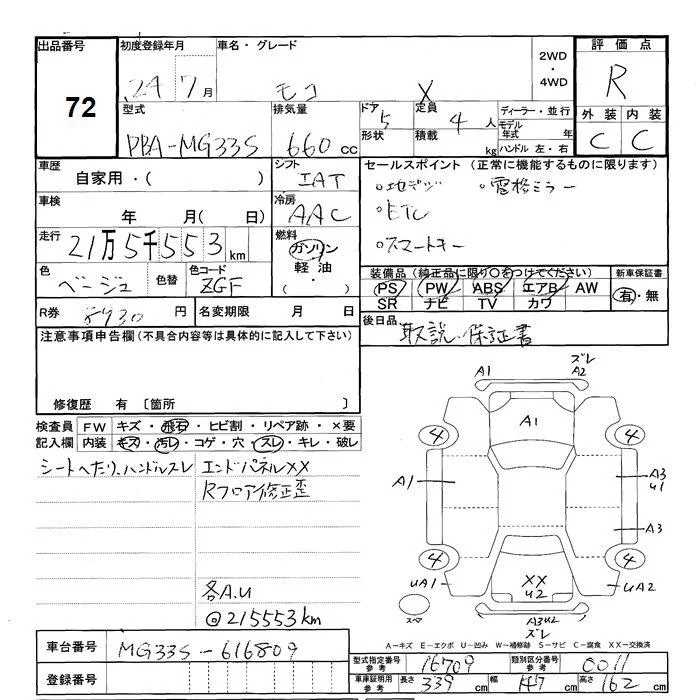 出品番号 初度登録年月 車名・グレード 2WD・4WD 評価点
72 24 7月 モコ X R
型式 排気量 ドア 5 定員 4人 ディーラー・並行 外装 内装
DBA-MG33S 660cc 形状 積載 kg モデル年式 年 ハンドル 左・右 C C
車歴 自家用・( ) シフト IAT セールスポイント (正常に機能するものに限ります)
車検 年 月( 日) 冷房 AAC ・地デジ ・電格ミラー
・ETC
・スマートキー
走行 21万5千553km 燃料 ガソリン 軽油 ・( )
色 ベージュ 色替 色コード ZGF
装備品 (純正品に限り〇をつけてください) 新車保証書
PS PW ABS エアB AW 有・無
SR ナビ TV カワ
R券 8930円 名変期限 月 日
後日品 取説・保証書
注意事項申告欄(不具合内容等は具体的に記入して下さい)
修復歴 有 〔箇所 〕
検査員記入欄 FW キズ・飛石・ヒビ割・リペア跡・×要
内装 キズ・汚レ・コゲ・穴・スレ・キレ・破レ
シートヘたり、ハンドルスレ エンドパネルXX
Rフロア修正歪
各A.U
◎215553km
ズレ
A1 A2
A1
4 4
A1 A3 U1
A3
4 4
UA1 XX U2 UA2
スペア A3U2
ズレ
A-キズ E-エクボ U-凹み W-補修跡 S-サビ C-腐食 XX-交換済
車台番号 MG33S-616809
登録番号
型式指定番号 参考 16709 類別区分番号 参考 0011
車庫証明用 参考 長さ 339cm 幅 147cm 高さ 162cm